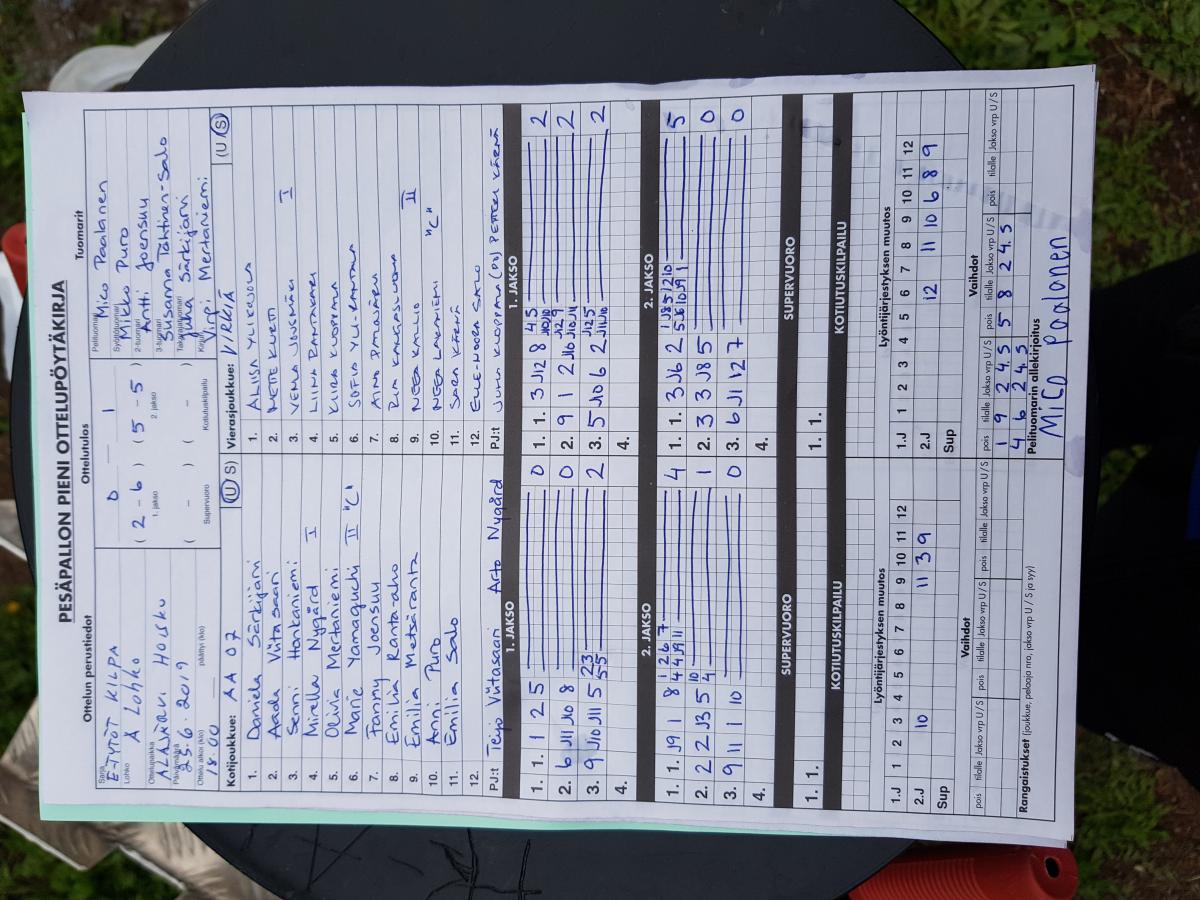 PESÄPALLON PIENI OTTELUPÖYTÄKIRJA
Ottelun perustiedot
Ottelutulos
Tuomarit
Sarja
E-TYTÖT KILPA
Lohko
A LOHKO
Ottelupaikka
ALAJÄRVI HOISKU
Päivämäärä
25.6.2019
Ottelu alkoi (klo)
päättyi (klo)
18.00
0 1
( 2 - 6 ) ( 5 - 5 )
1. jakso 2. jakso
( - ) ( - )
Supervuoro Kotiutuskilpailu
Pelituomari
Mico Paalanen
Syöttötuomari
Mikko Puro
2-tuomari
Antti Joensuu
3-tuomari
Susanna Tähtinen-Salo
Takarajatuomari
Juha Särkijärvi
Kirjuri
Virpi Mertaniemi
Kotijoukkue: AA 07 (U S)
1. Daniela Särkijärvi
2. Aada Viitasaari
3. Senni Hankaniemi
4. Mirella Nygård I
5. Olivia Mertaniemi
6. Marie Yamaguchi II "C"
7. Fanny Joensuu
8. Emilia Ranta-aho
9. Emilia Metsäranta
10. Anni Puro
11. Emilia Salo
12.
PJ:t Teijo Viitasaari Arto Nygård
Vierasjoukkue: VIRKIÄ (U S)
1. ALIISA YLIKAJOLA
2. METTE KUNTI
3. VENLA JOUSMÄKI I
4. LIINA RANTAKARI
5. KIIRA KUOPPALA
6. SOFIA YLI-RANTALA
7. AINO PANULAJÄRVI
8. RIIA KANGASLUOMA
9. NEEA KALLIO II
10. NEEA LAKANIEMI "C"
11. SARA KÄRNÄ
12. ELLE-NOORA SALO
PJ:t JUKKA KUOPPALA (PJ) PETTERI KÄRNÄ
1. JAKSO
1. 1. 1 2 5 0
2. 6 J11 J10 8 0
3. 9 J10 J11 5 23 55 2
4.
1. JAKSO
1. 1. 3 J12 8 45 J10J10 2
2. 9 1 2 J10 J2 9 J10 J11 2
3. 5 J10 6 2 J12 5 J11 J10 2
4.
2. JAKSO
1. 1. J9 1 8 1 2 6 7 4 4 J9 11 4
2. 2 2 J3 5 10 4 1
3. 9 11 1 10 0
4.
2. JAKSO
1. 1. 3 J6 2 1 J8 5 12 10 5 J6 10 J9 1 5
2. 3 3 J8 5 0
3. 6 J1 12 7 0
4.
SUPERVUORO
1. 1.
SUPERVUORO
1. 1.
KOTIUTUSKILPAILU
KOTIUTUSKILPAILU
Lyöntijärjestyksen muutos
1.J 1 2 3 4 5 6 7 8 9 10 11 12
2.J 10 11 3 9
Sup
Lyöntijärjestyksen muutos
1.J 1 2 3 4 5 6 7 8 9 10 11 12
2.J 12 11 10 6 8 9
Sup
Vaihdot
pois tilalle Jakso vrp U/S pois tilalle Jakso vrp U/S pois tilalle Jakso vrp U/S
Vaihdot
pois tilalle Jakso vrp U/S pois tilalle Jakso vrp U/S pois
1 9 2 4.5 5 8 2 4.5
4 6 2 4.5
Rangaistukset (joukkue, pelaaja nro, jakso vrp U / S ja syy)
Pelituomarin allekirjoitus
Mico paalanen